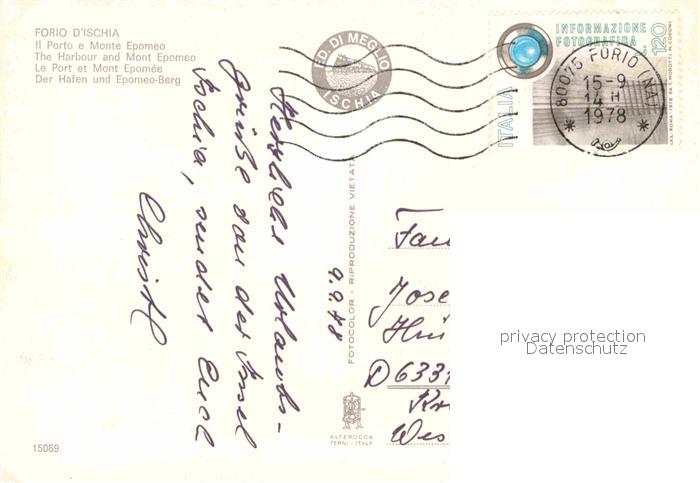 FORIO D'ISCHIA
Il Porto e Monte Epomeo
The Harbour and Mont Epomeo
Le Port et Mont Epomée
Der Hafen und Epomeo-Berg
ED. DI MEGLIO
ISCHIA
INFORMAZIONE
FOTOGRAFICA
L. 120
ITALIA
80075 FORIO (NA)
15-9
14 H
1978
Herzliche Urlaubs-
grüße von der Insel
Ischia, sendet Euch
Christl
9.9.78
FOTOCOLOR - RIPRODUZIONE VIETATA
ALTEROCCA
TERNI - ITALY
Fam
Jose
D 6331
Wes
privacy protection
Datenschutz
15069